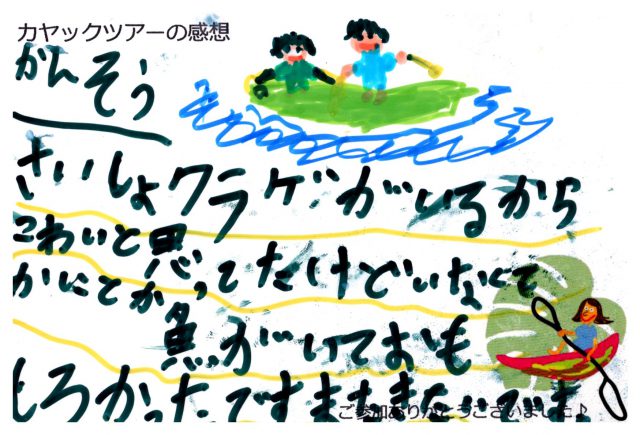 カヤックツアーの感想
かんそう
さいしょクラゲがいるから
こわいと思ってたけどいなくて
かにとか
魚がいておも
しろかったですまたきたいです
ご参加ありがとうございました♪